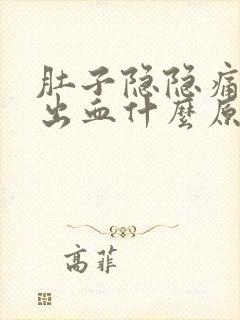 肚子隐隐痛
出血什麽原
高菲